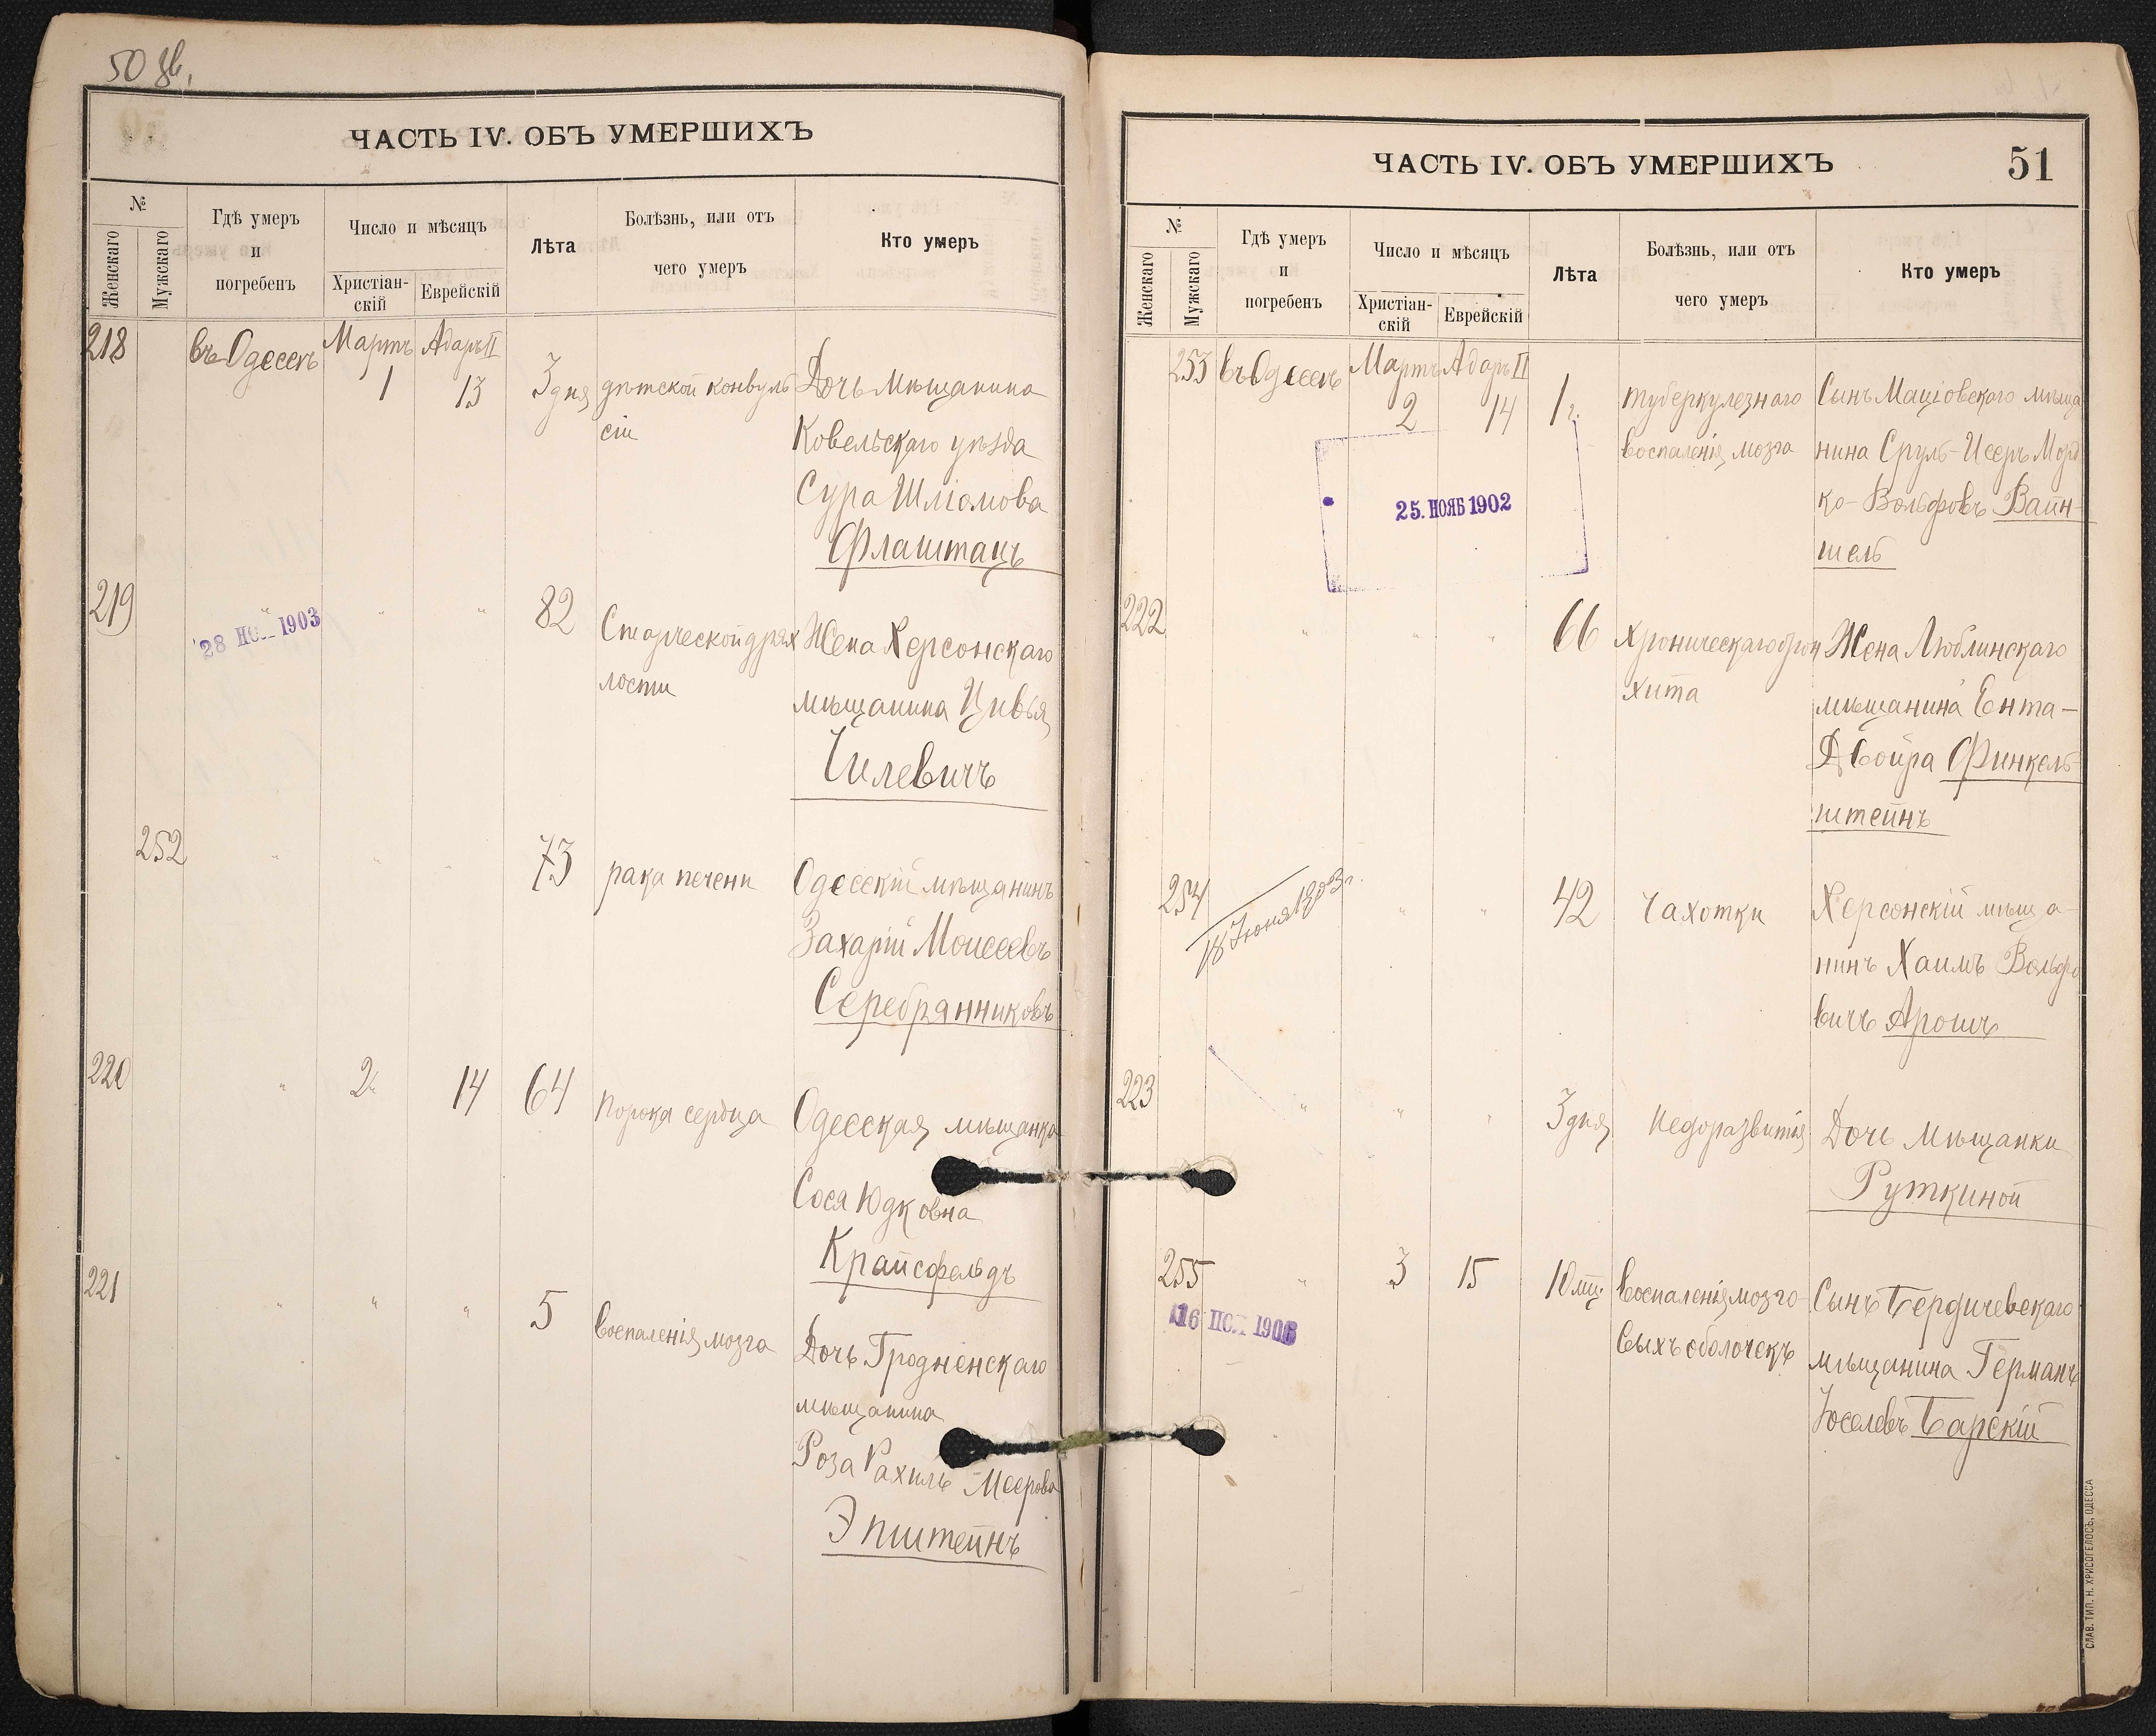 50 об.
ЧАСТЬ IV. ОБЪ УМЕРШИХЪ
№
Женскаго
Мужскаго
Гдѣ умеръ
и
погребенъ
Число и мѣсяцъ
Христіан-
скій
Еврейскій
Лѣта
Болѣзнь, или отъ
чего умеръ
Кто умеръ
218 въ Одессѣ Мартъ Адаръ II
1 13 3 дня дѣтской конвуль Дочь мѣщанина
сіи Ковельскаго уѣзда
Сура Шліомова
Флаштацъ
219 " " " 82 Старческой дрях Жена Херсонскаго
28 1903
лости мѣщанина Цивья
Гилевичъ
252 " " " 73 рака печени Одесскій мѣщанинъ
Захарій Моисеевъ
Серебрянниковъ
220 " 2 14 64 Порока сердца Одесская мѣщанка
Сося Юдковна
Крайсфельдъ
221 " " " 5 Воспаленія мозга Дочь Гродненскаго
мѣщанина
Роза Рахиль Меерова
Эпштейнъ
ЧАСТЬ IV. ОБЪ УМЕРШИХЪ 51
№
Женскаго
Мужскаго
Гдѣ умеръ
и
погребенъ
Число и мѣсяцъ
Христіан-
скій
Еврейскій
Лѣта
Болѣзнь, или отъ
чего умеръ
Кто умеръ
253 въ Одессѣ Мартъ Адаръ II
2 14 1 г. туберкулезнаго Сынъ Маціовскаго мѣща
воспаленія мозга нина Сруль-ИсеръМорд
25. НОЯБ 1902
ко-Вольфовъ Вайн-
шель
222 " " " 66 Хроническаго брон Жена Люблинскаго
хита мѣщанина Ента-
Двойра Финкель-
штейнъ
254 18 Іюня 1903 г. " " 42 Чахотки Херсонскій мѣща-
нинъ Хаимъ Вольфо
вичъ Арошъ
223 " " " 3 дня Недоразвитія Дочь мѣщанки
Руткиной
255 " 3 15 10 мц. Воспаленія мозго- Сынъ Бердичевскаго
16
выхъ оболочекъ мѣщанина Германъ
Іоселевъ Барскій
СЛАВ. ТИП. Н. ХРИСОГЕЛОСЪ, ОДЕССА